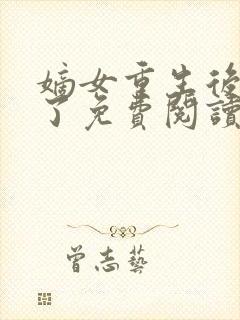 嫡女重生後
了免費閱讀
曾志藝